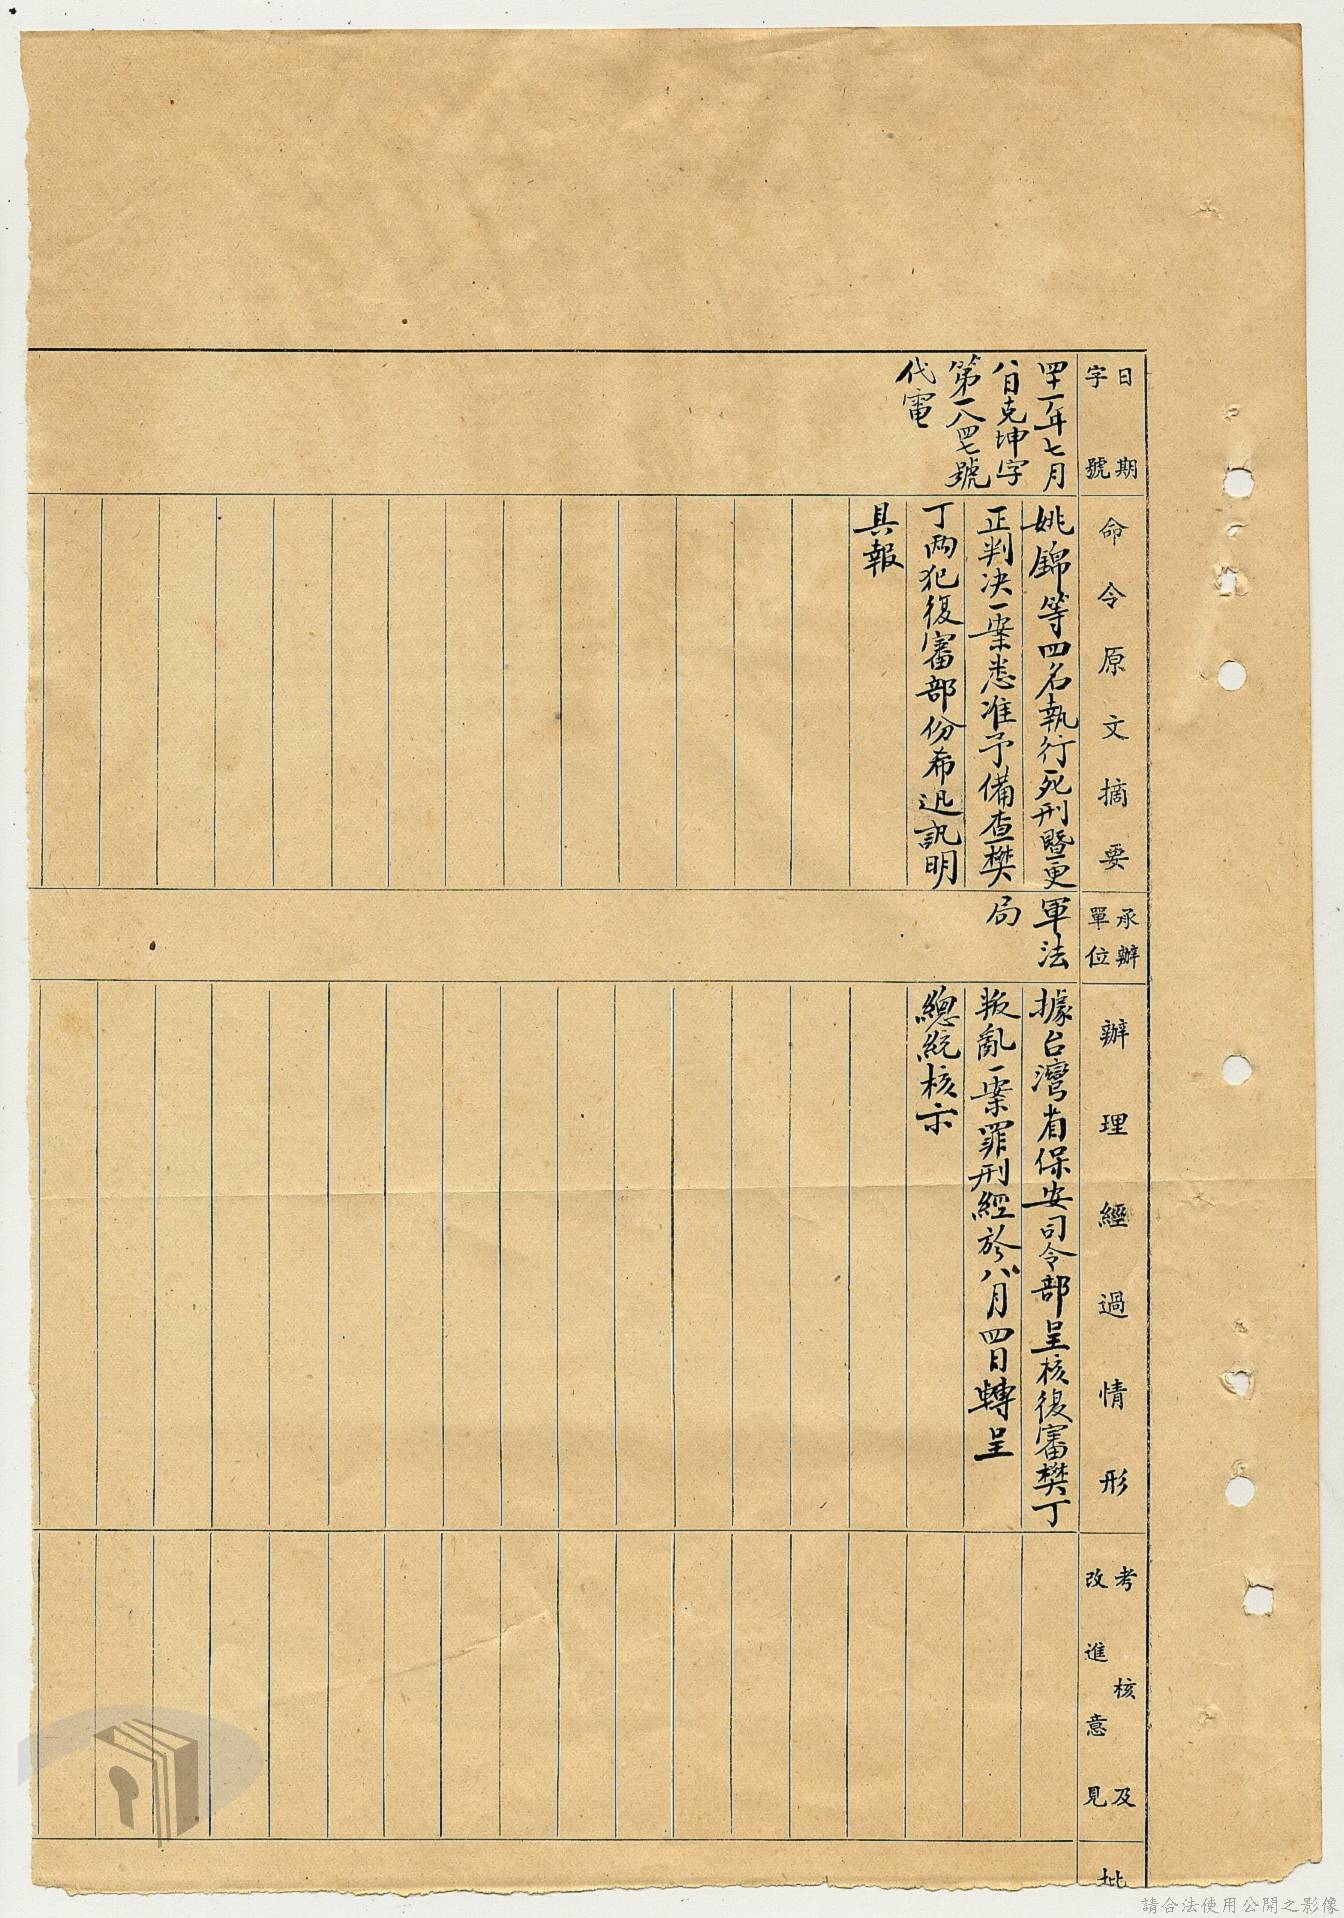 日期
字號
四十一年七月
八日克坤字
第一八四七號
代電
命令原文摘要
姚錦等四名執行死刑暨更
正判決一案悉准予備查樊
丁兩犯復審部份希迅訊明
具報
承辦
單位
軍法
局
辦理經過情形
據台灣省保安司令部呈核復審樊丁
叛亂一案罪刑經於八月四日轉呈
總統核示
考核及
改進意見
請合法使用公開之影像